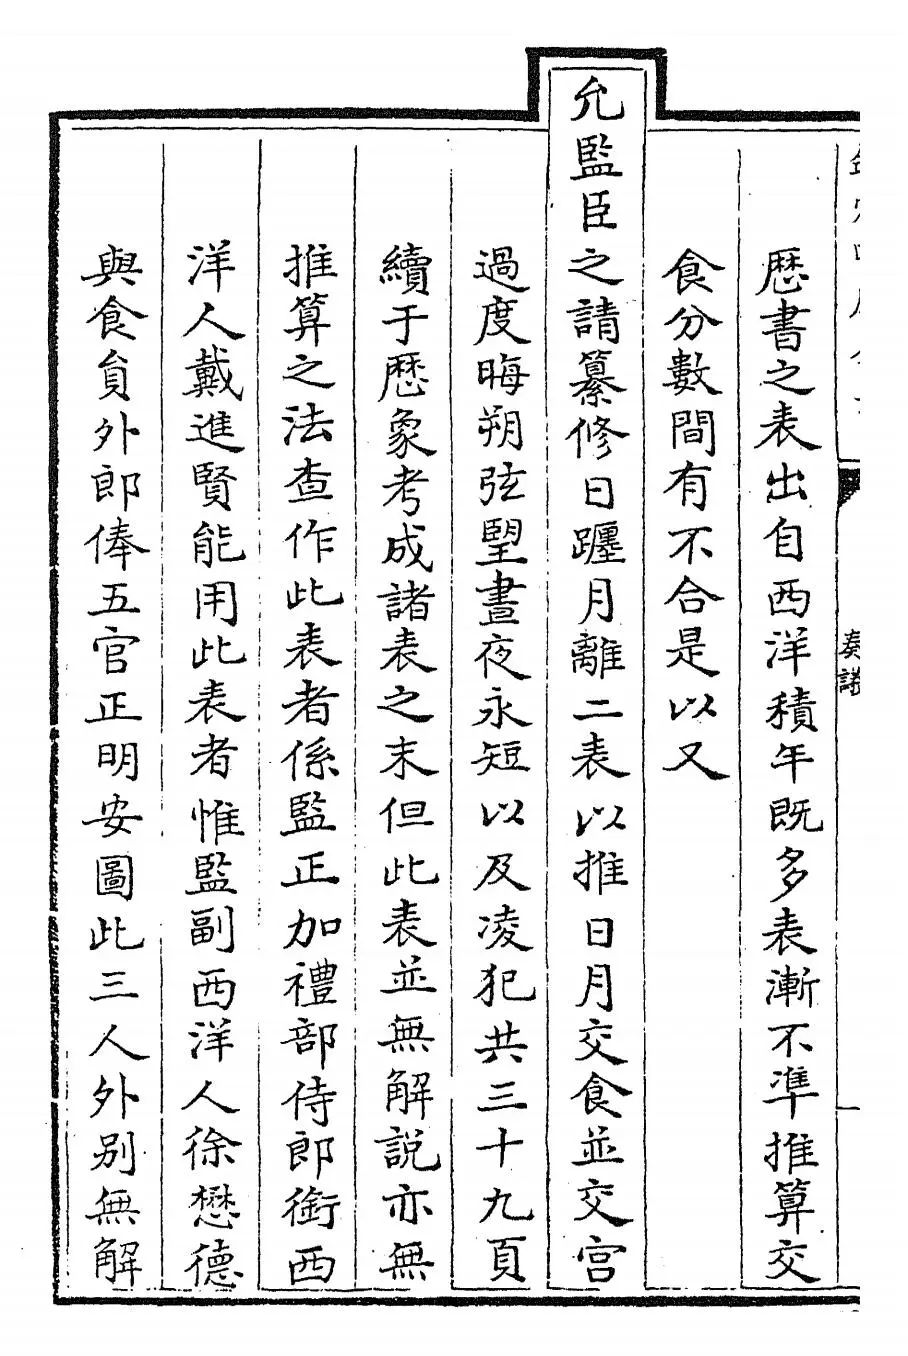 奏議
歴書之表出自西洋積年既多表漸不準推算交
食分數間有不合是以又
允監臣之請纂修日躔月離二表以推日月交食並交宮
過度晦朔弦望晝夜永短以及凌犯共三十九頁
續于歴象考成諸表之末但此表並無解說亦無
推算之法查作此表者係監正加禮部侍郎銜西
洋人戴進賢能用此表者惟監副西洋人徐懋德
與食員外郎俸五官正明安圖此三人外别無解